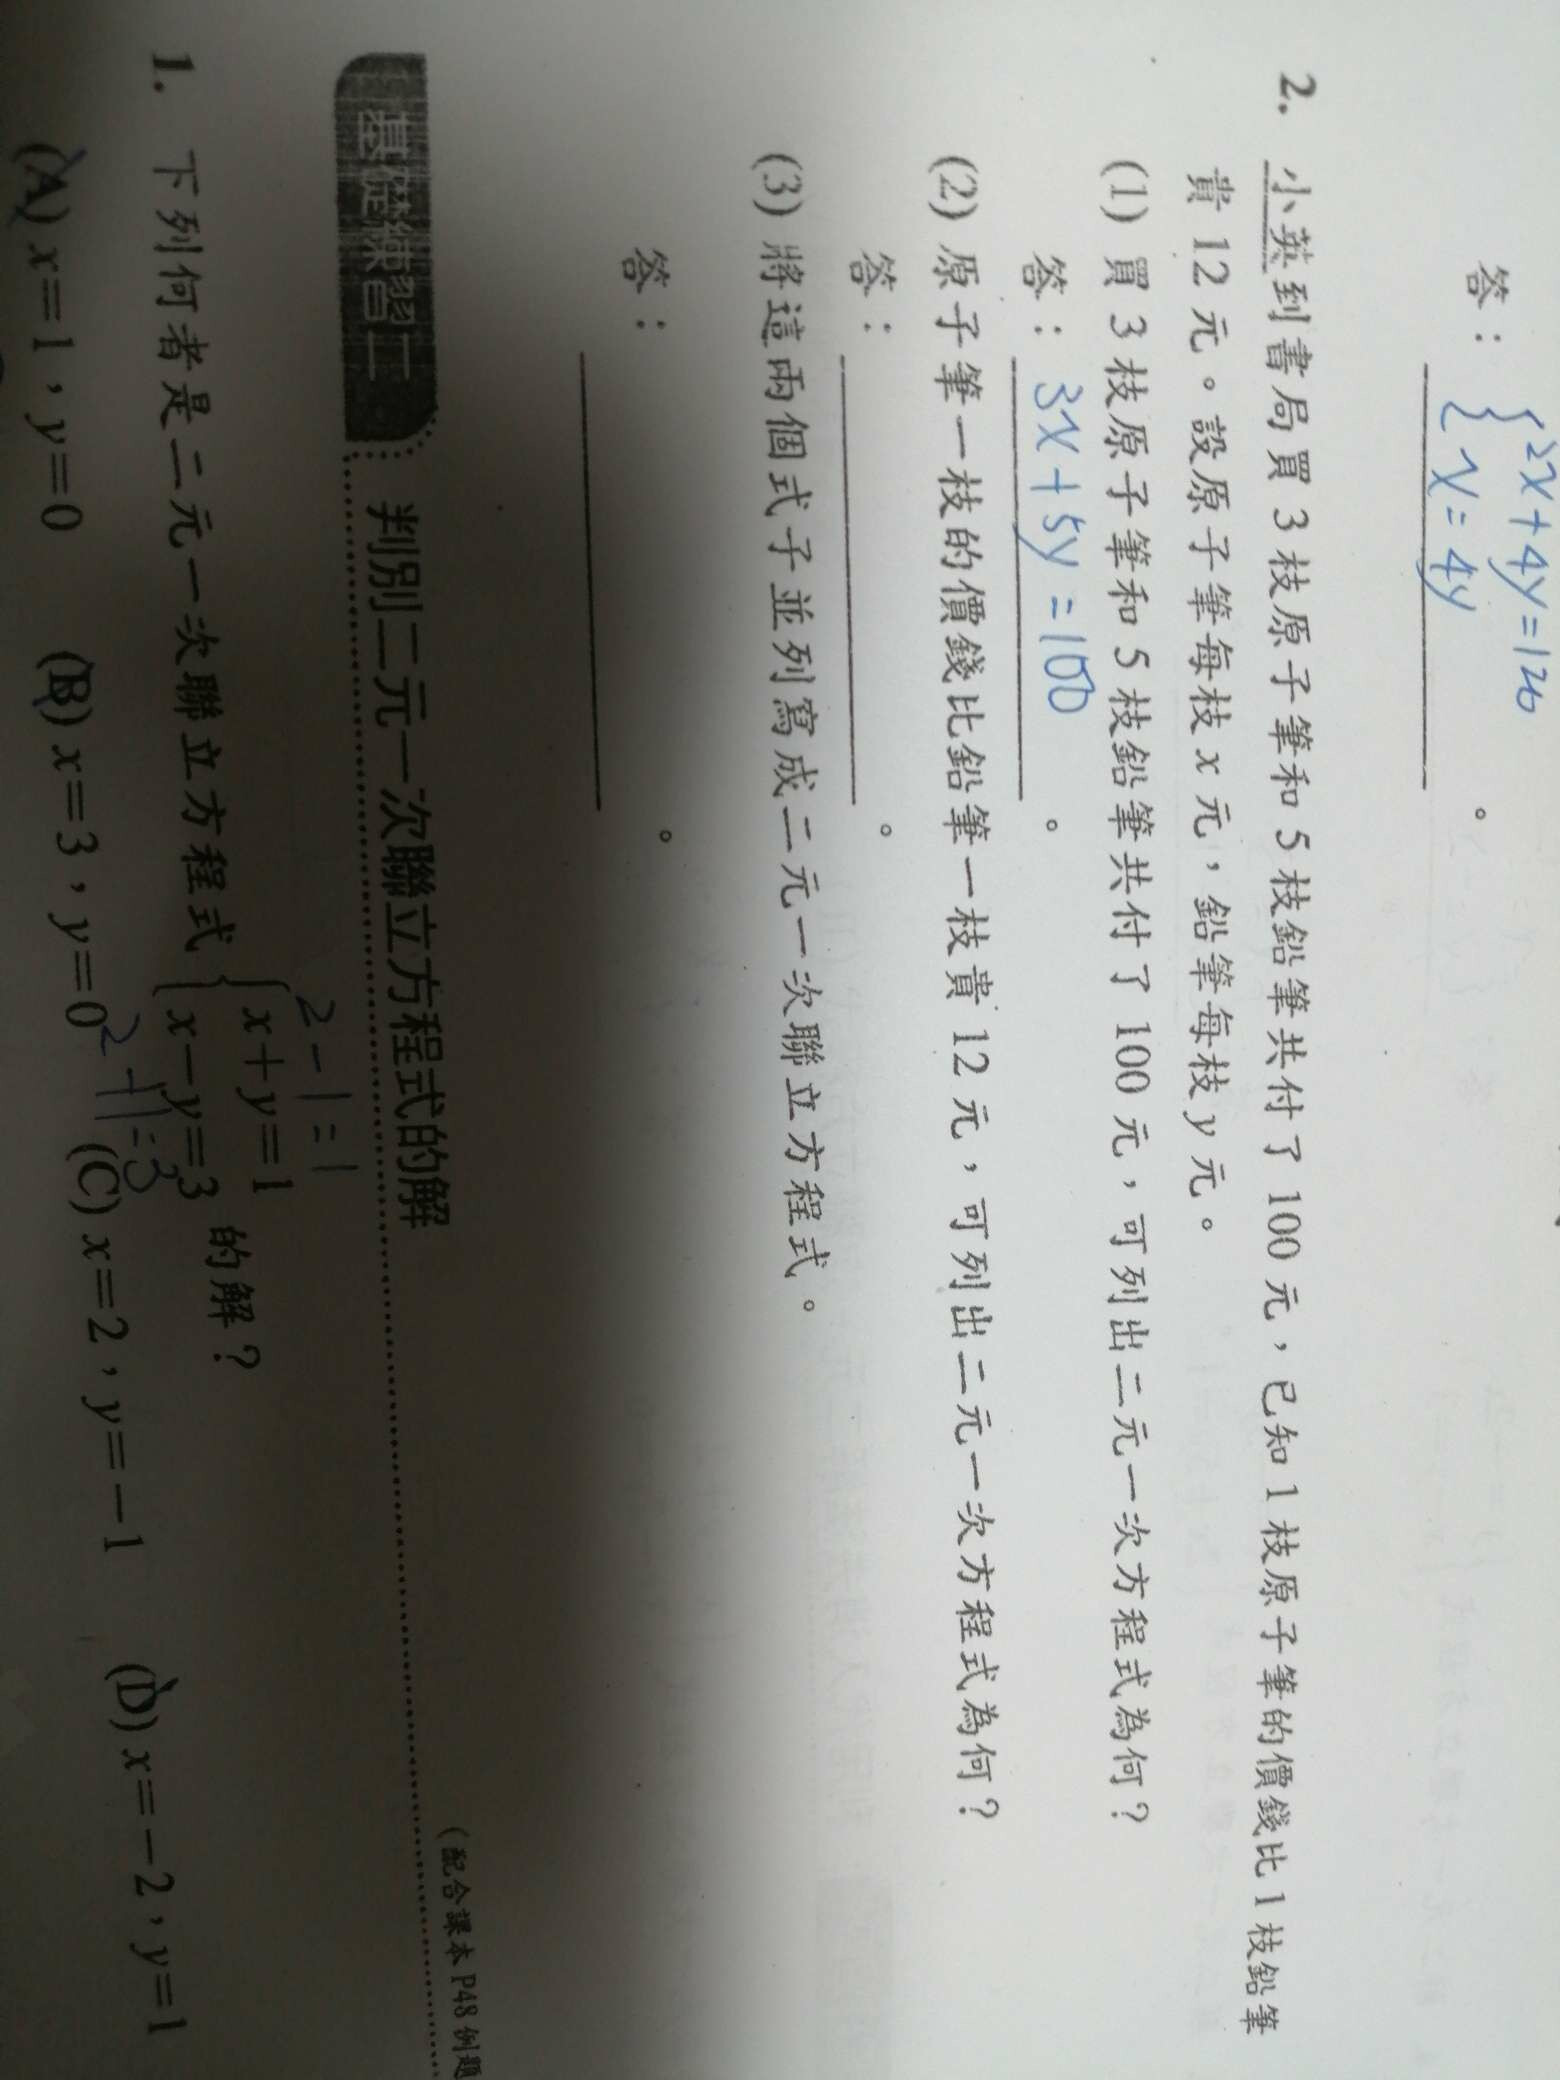 答： { 2x+4y=126
x=4y 。
2. 小英到書局買 3 枝原子筆和 5 枝鉛筆共付了 100 元，已知 1 枝原子筆的價錢比 1 枝鉛筆
貴 12 元。設原子筆每枝 x 元，鉛筆每枝 y 元。
(1) 買 3 枝原子筆和 5 枝鉛筆共付了 100 元，可列出二元一次方程式為何？
答：3x+5y=100。
(2) 原子筆一枝的價錢比鉛筆一枝貴 12 元，可列出二元一次方程式為何？
答：。
(3) 將這兩個式子並列寫成二元一次聯立方程式。
答：。
(配合課本 P48 例題
基礎練習二 判別二元一次聯立方程式的解
2-1=1
1. 下列何者是二元一次聯立方程式 { x+y=1
x-y=3 的解？
2+1=3
(A) x=1，y=0 (B) x=3，y=0 (C) x=2，y=-1 (D) x=-2，y=1